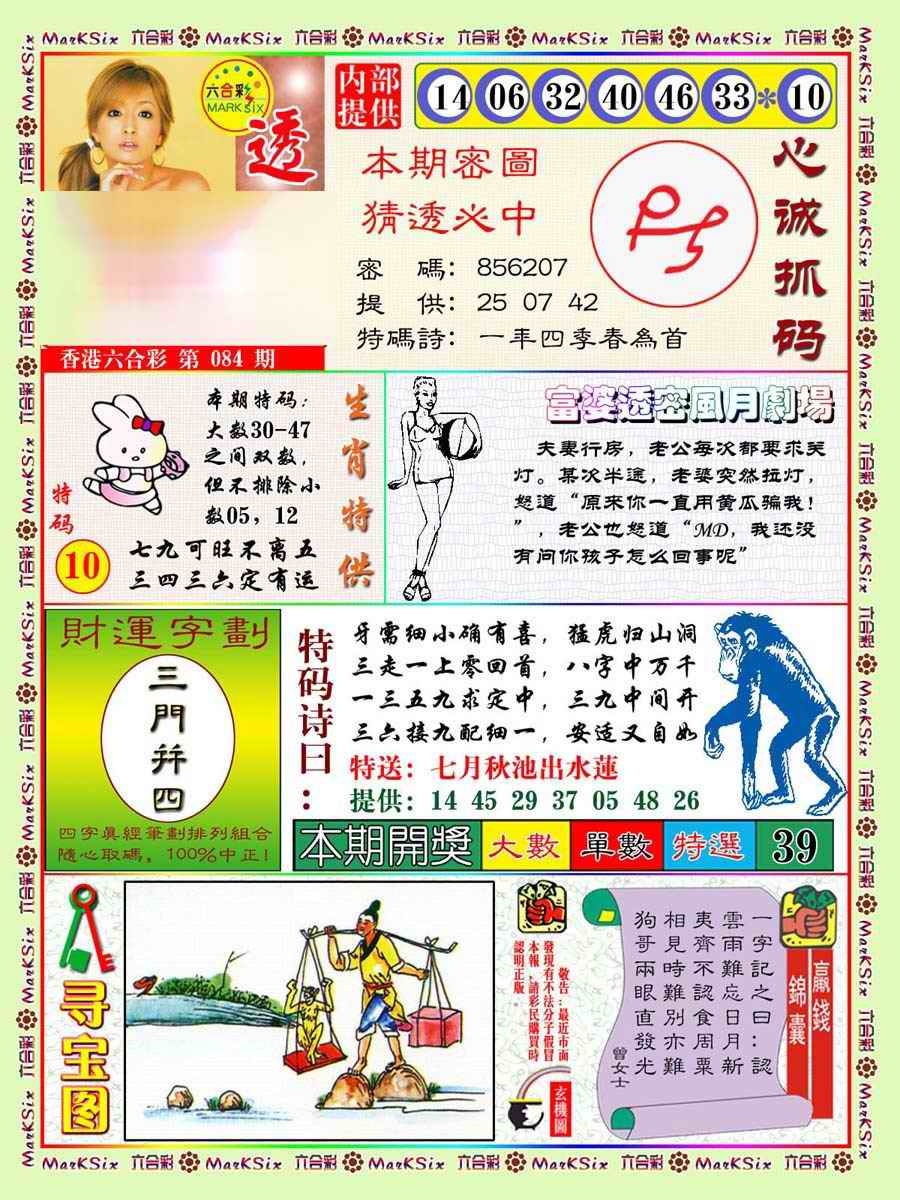 MarKSix 六合彩 MarKSix 六合彩 MarKSix 六合彩 MarKSix 六合彩 MarKSix 六合彩
六合彩
MARK SIX
透
内部
提供
14 06 32 40 46 33 * 10
本期密圖
猜透必中
密 碼: 856207
提 供: 25 07 42
特碼詩: 一年四季春為首
心诚抓码
香港六合彩 第 084 期
本期特码:
大数30-47
之间双数,
但不排除小
数05, 12
七九可旺不离五
三四三六定有运
特码
10
生肖特供
富婆透密風月劇場
夫妻行房，老公每次都要求关
灯。某次半途，老婆突然拉灯，
怒道“原来你一直用黄瓜骗我！
”，老公也怒道“MD，我还没
有问你孩子怎么回事呢”
財運字劃
三門并四
四字真經筆劃排列組合
隨心取碼, 100%中正!
特码诗曰:
牙需细小确有喜, 猛虎归山洞
三走一上零回首, 八字中万千
一三五九求定中, 三九中间开
三六接九配细一, 安适又自如
特送: 七月秋池出水蓮
提供: 14 45 29 37 05 48 26
本期開獎 大數 單數 特選 39
寻宝图
敬告:最近市面
發現有不法分子假冒
本報,請彩民購買時
認明正版。
玄機圖
贏錢
錦囊
一字記之曰:認
雲雨難忘日月新
夷齊不認食周粟
相見時難別亦難
狗哥兩眼直發光
曾女士
MarKSix 六合彩 MarKSix 六合彩 MarKSix 六合彩 MarKSix 六合彩 MarKSix 六合彩